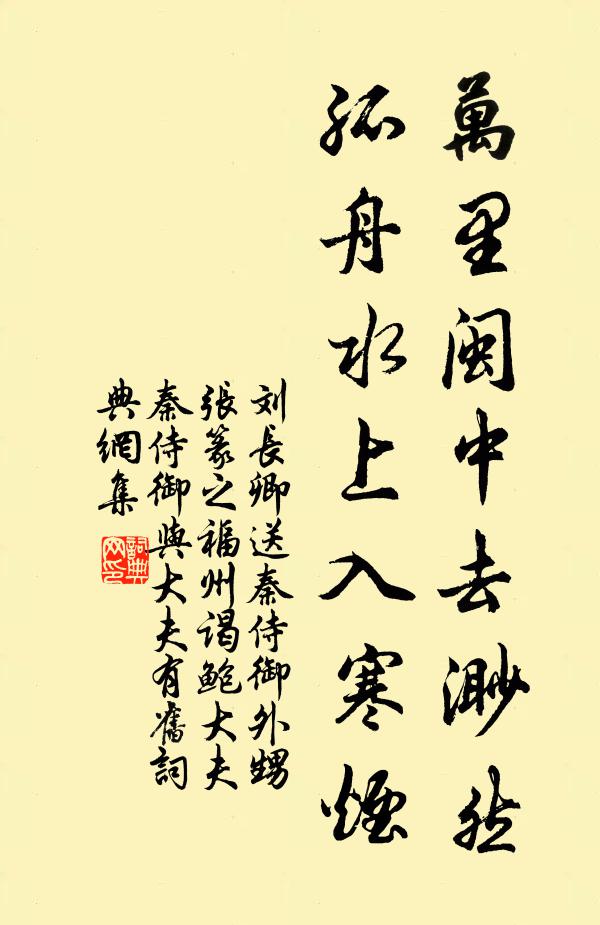 萬里閩中去渺然
孤舟水上入寒煙
刘長卿送秦侍御外甥
張篆之福州谒鮑大夫
秦侍御與大夫有舊詞
典網集
詞典
网印